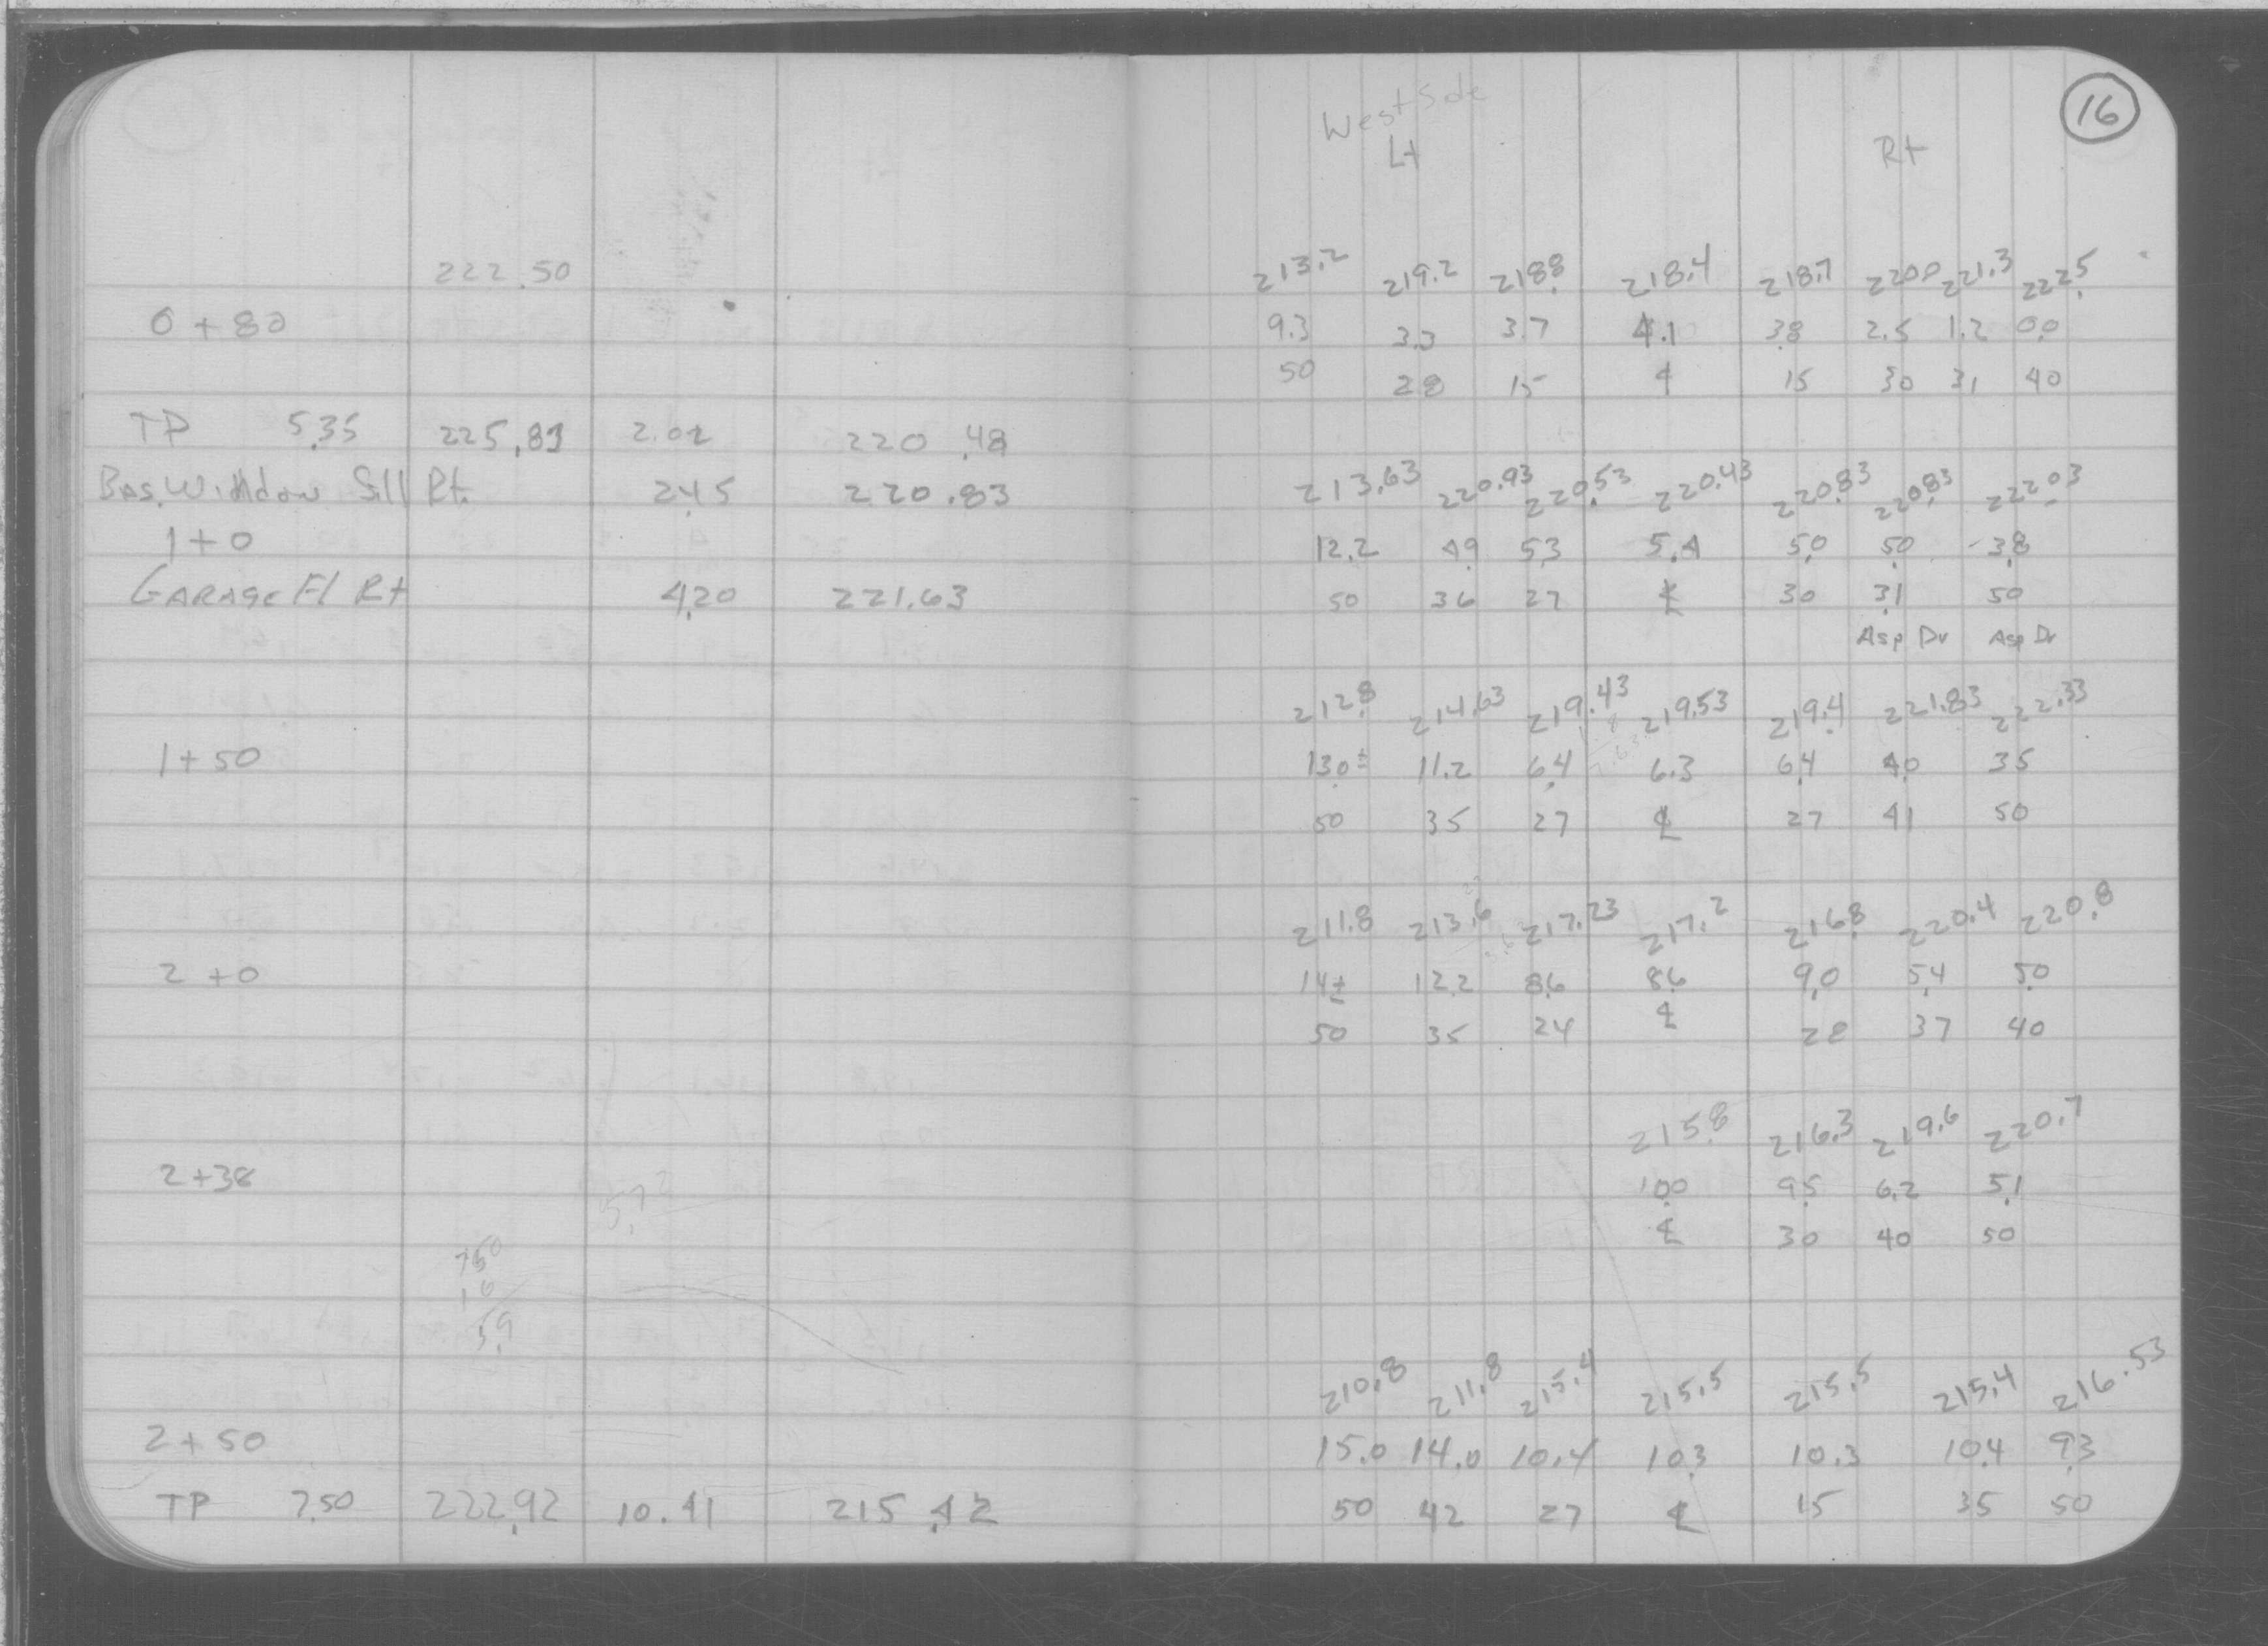 16
West Side
Lt Rt
222.50 213.2 219.2 218.8 218.4 218.7 220.0 221.3 222.5
0+80 9.3 3.3 3.7 4.1 3.8 2.5 1.2 0.0
50 28 15 ℄ 15 30 31 40
TP 5.35 225.83 2.02 220.48
Bas. Window Sill Rt. 2.45 220.83 213.63 220.93 220.53 220.43 220.83 220.83 222.03
1+0 12.2 4.9 5.3 5.4 5.0 5.0 3.8
GARAGE Fl Rt 4.20 221.63 50 36 27 ℄ 30 31 50
Asp Dr Asp Dr
212.8 214.63 219.43 219.53 219.4 221.83 222.33
1+50 13.0± 11.2 6.4 6.3 6.4 4.0 3.5
50 35 27 ℄ 27 41 50
211.8 213.6 217.23 217.2 216.8 220.4 220.8
2+0 14± 12.2 8.6 8.6 9.0 5.4 5.0
50 35 24 ℄ 28 37 40
215.8 216.3 219.6 220.7
2+38 10.0 9.5 6.2 5.1
℄ 30 40 50
210.8 211.8 215.4 215.5 215.5 215.4 216.53
2+50 15.0 14.0 10.4 10.3 10.3 10.4 9.3
TP 7.50 222.92 10.41 215.42 50 42 27 ℄ 15 35 50